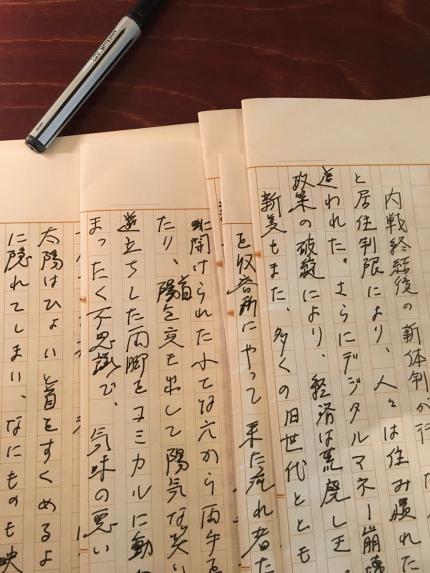 内戦終結後の新体制が行
と居住制限により、人々は住み慣れた
追われた。さらにデジタルマネー崩壊
政策の破綻により、経済は荒廃しき
新美もまた、多くの旧世代ととも
を収容所にやって来た流れ者た
に開けられた小さな穴から両手を
たり、首を突き出して陽気な笑い
逆立ちした両脚をコミカルに動
まったく不思議で、気味の悪い
太陽はひょいと首をすくめるよ
に隠れてしまい、なにものも映